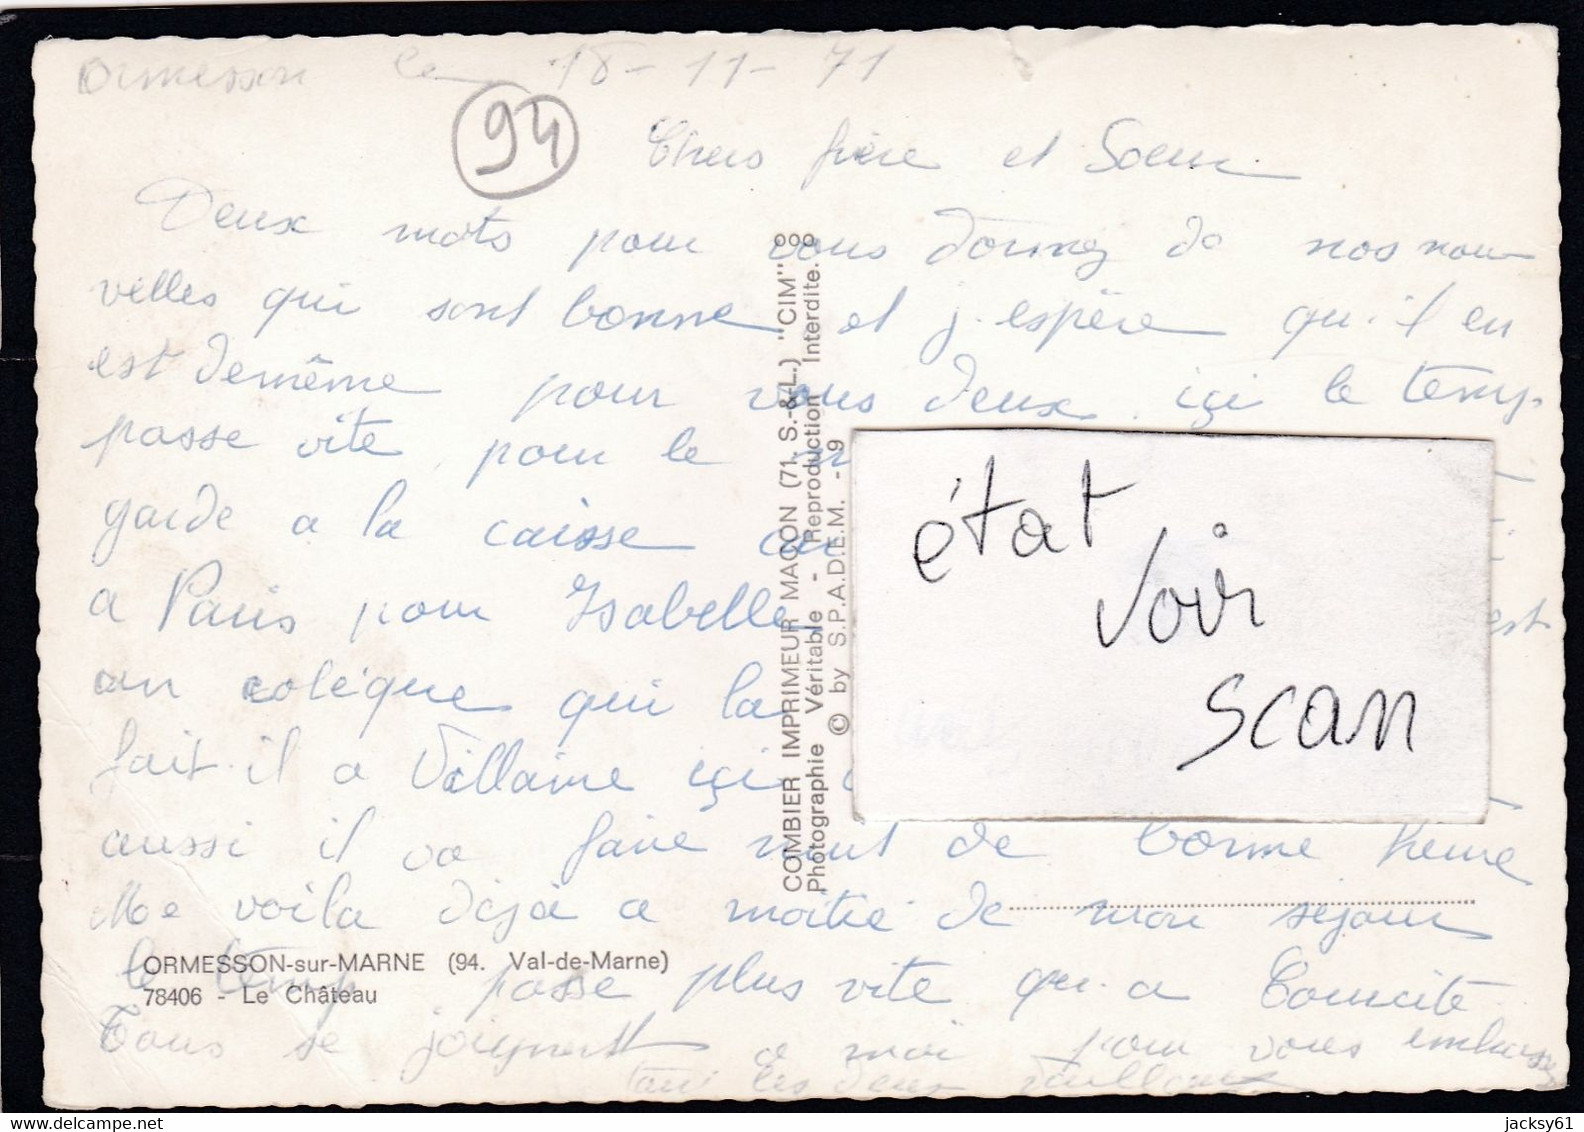 Ormesson le 18-11-71
94
Chers frère et Soeur
Deux mots pour vous donnez de nos nou
velles qui sont bonne et j'espère qu'il en
est demême pour vous deux. içi le temp
passe vite pour le
garde a la caisse
a Paris pour Isabelle est
un colègue qui la
fait il a Villaine içi
aussi il va faire nuit de bonne heure
Me voila déja a moitié de mon séjour
le temp passe plus vite qu'a
Tous se joignent a moi pour vous embrassez
tous les deux
état
voir
scan
COMBIER IMPRIMEUR MACON (71. S.-&-L.) "CIM" ooo
Photographie Véritable - Reproduction Interdite.
© by S.P.A.D.E.M. - 9
ORMESSON-sur-MARNE (94. Val-de-Marne)
78406 - Le Château
jacksy61